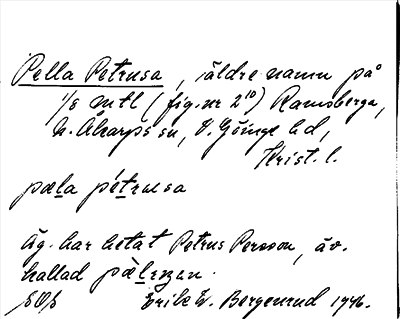 Pella Petrusa, äldre namn på
1/8 mtl (fig. nr 2¹⁰) Ramsberga,
N. Åkarps sn, V. Göinge hd,
Krist. l.
pæla pétrusa
Äg. har hetat Petrus Persson, äv.
kallad
Erik W. Bergenrud 1946.